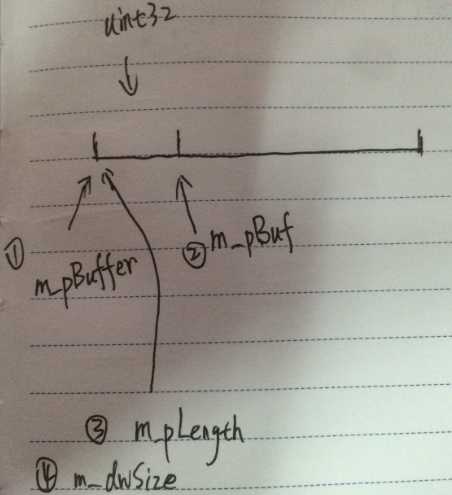 uint32
② m_pBuf
① m_pBuffer
③ m_pLength
④ m_dwSize